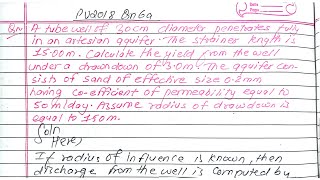 PU2018 Qn6a
Qn A tube well of 30cm diameter penetrates fully
in an artesian aquifer. The strainer length is
15.00m. Calculate the yield from the well
under a drawdown of 3.0m. The aquifer con-
sists of sand of effective size 0.2mm
having co-efficient of permeability equal to
50m/day. Assume radius of drawdown is
equal to 150m.
Soln
Here,
If radius of influence is known, then
discharge from the well is computed by